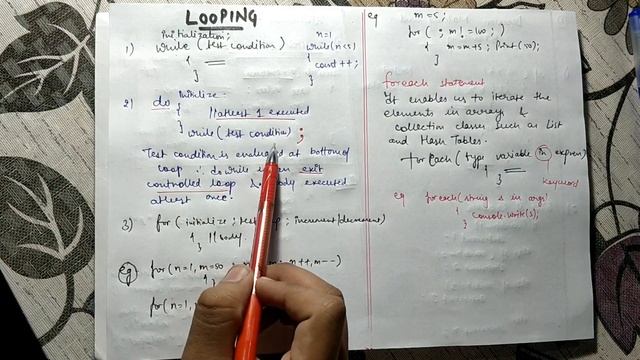 LOOPING
Initialization;
1) while (test condition)
{
}
n=1
while(n<5)
{
count++;
}
2) do
Initialize-
{
//atleast 1 executed
} while (test condition) ;
Test condition is evaluated at bottom of
loop ∴ do while is an exit
controlled loop & body executed
atleast once.
3) for (initialize ; increment/decrement)
{
} // body.
eg for (n=1, m=50 ; n++, m--)
{
for (n=1,
eg m=5;
for ( ; m!=100 ; )
{ m=m+5;
}
foreach statement
It enables us to iterate the
elements in arrays &
collection classes such as List
and Hash Tables.
foreach (type variable in expression)
{
}
keyword
eg foreach (string s in args)
{ console.write(s);
}